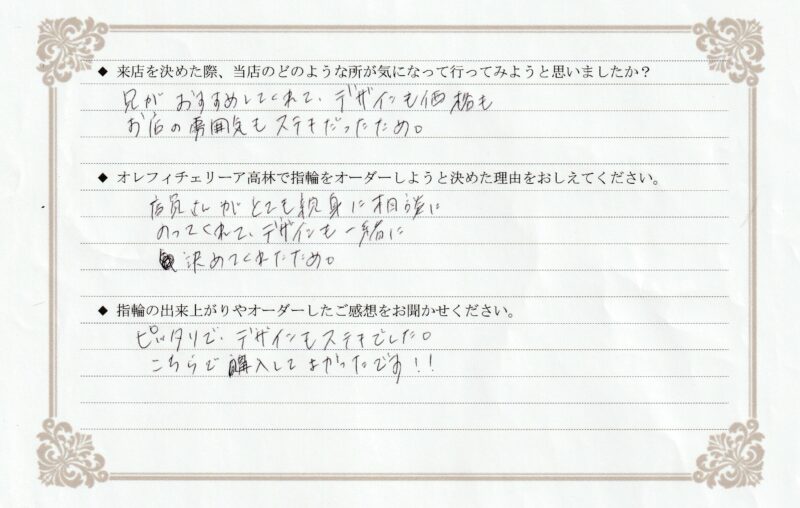 ◆ 来店を決めた際、当店のどのような所が気になって行ってみようと思いましたか？
兄が おすすめしてくれて、デザインも価格も
お店の雰囲気もステキだったため。
◆ オレフィチェリーア高林で指輪をオーダーしようと決めた理由をおしえてください。
店員さんがとても親身に相談に
のってくれて、デザインも一緒に
決めてくれたため。
◆ 指輪の出来上がりやオーダーしたご感想をお聞かせください。
ピッタリで、デザインもステキでした。
こちらで購入してよかったです！！